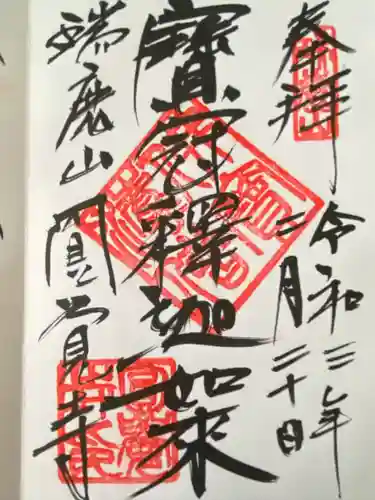 奉拝
令和三年
二月二十日
寶冠釋迦如来
瑞鹿山
圓覚寺